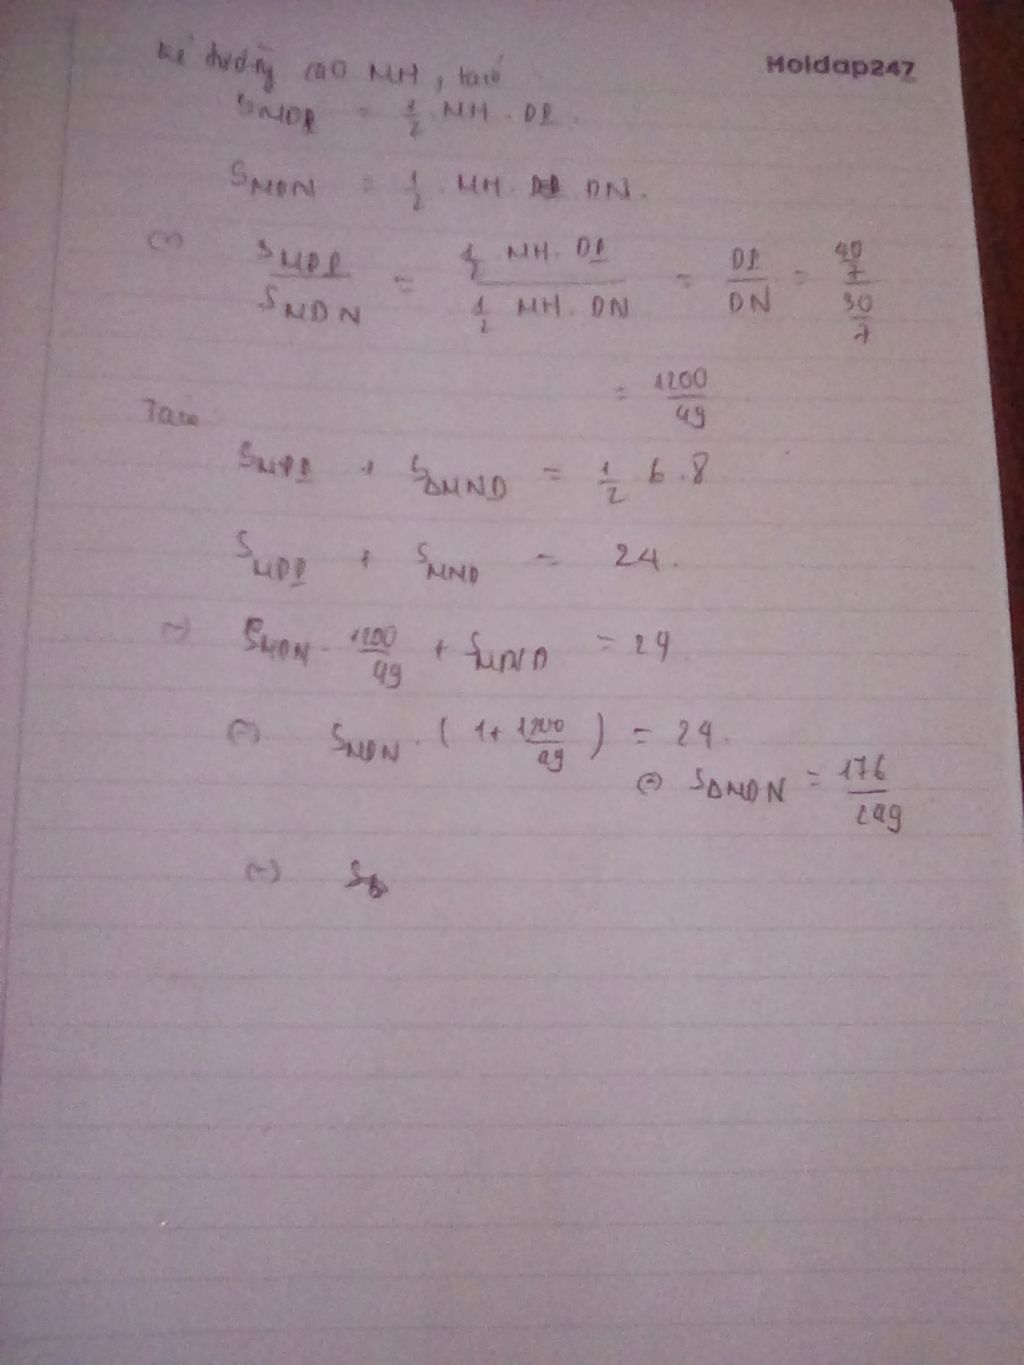 Kẻ đường cao MH, ta có
Hoidap247
S_MDP = 1/2 MH . DP .
S_MDN = 1/2 . MH . DN .
(=) S_MDP / S_MDN = 1/2 MH . DP / 1/2 MH . DN = DP / DN = 40/7 / 30/7
= 1200/49
Ta có
S_MDP + S_ΔMND = 1/2 6 . 8
S_MDP + S_MND = 24 .
(=) S_MDN . 1200/49 + S_MND = 24
(=) S_MDN . ( 1 + 1200/49 ) = 24 .
(=) S_ΔMDN = 1176/1249
(=) S_Δ